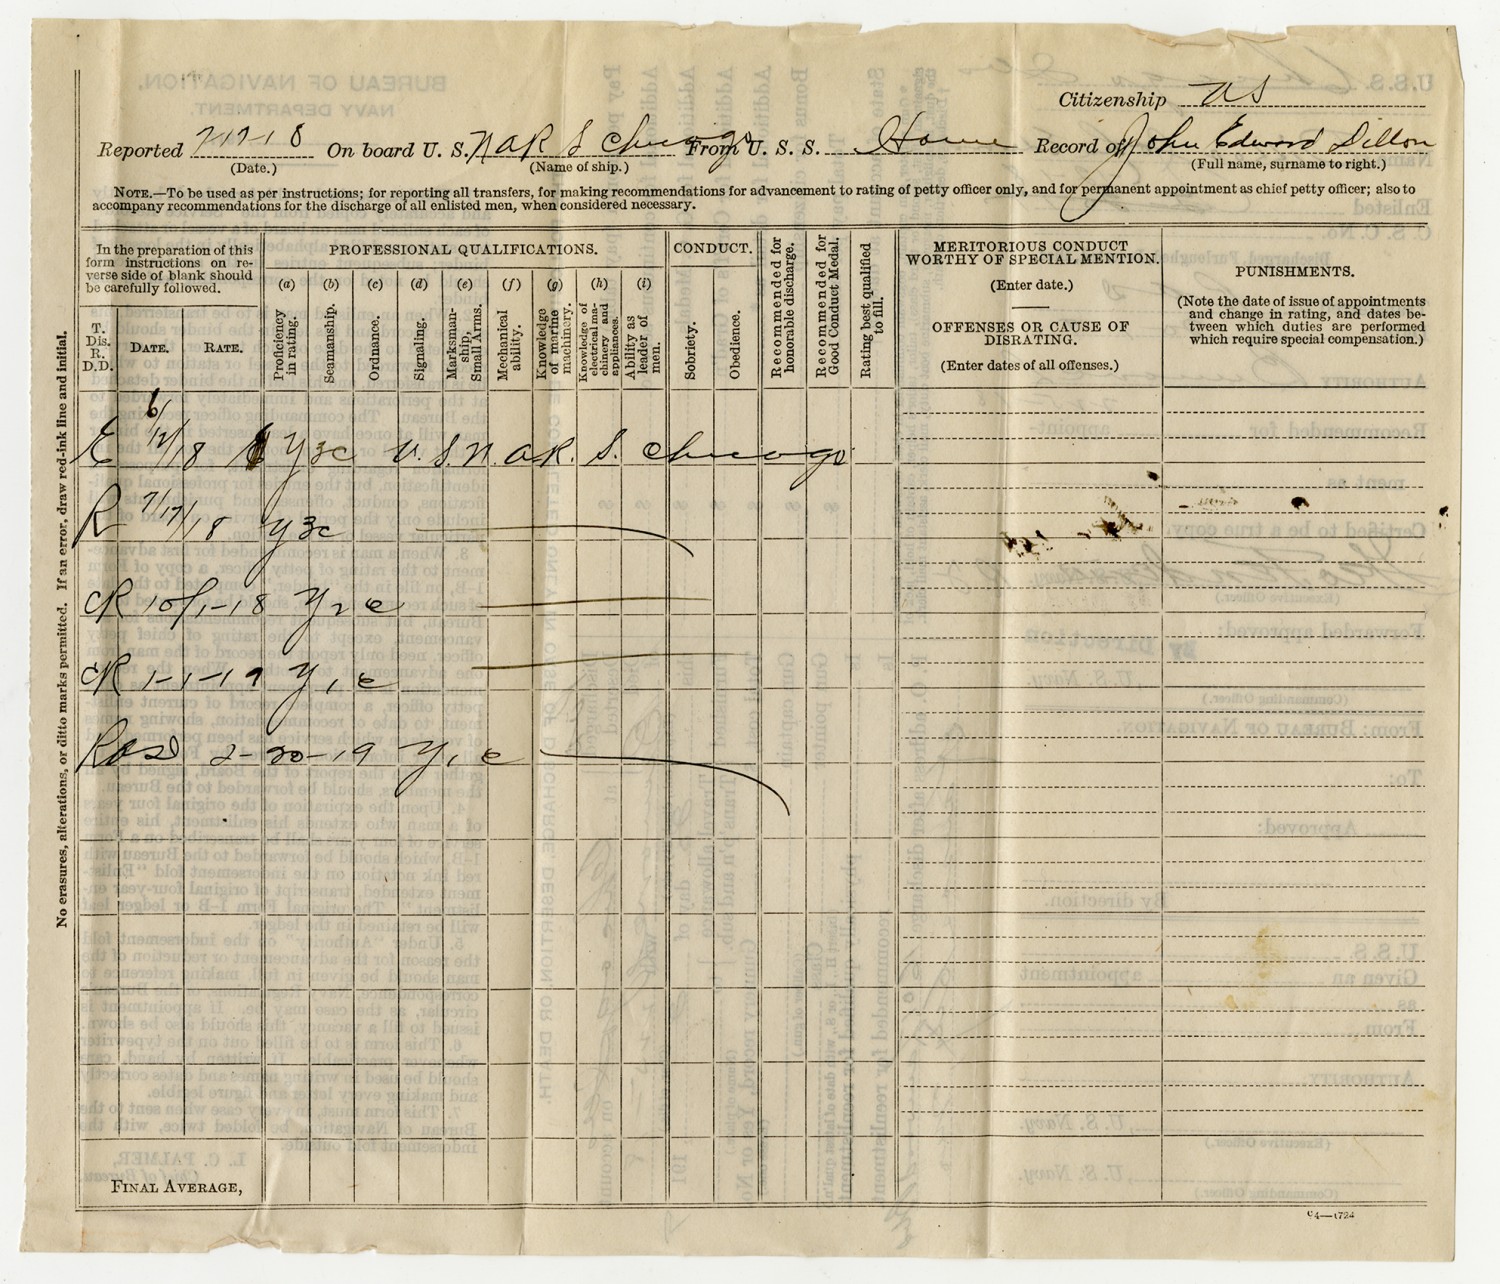 Citizenship US
Reported 7-17-18 On board U. S. NAR S Chicago From U. S. S. Home Record of John Edward Dillon
(Date.) (Name of ship.) (Full name, surname to right.)
NOTE.—To be used as per instructions; for reporting all transfers, for making recommendations for advancement to rating of petty officer only, and for permanent appointment as chief petty officer; also to
accompany recommendations for the discharge of all enlisted men, when considered necessary.
No erasures, alterations, or ditto marks permitted. If an error, draw red-ink line and initial.
In the preparation of this
form instructions on re-
verse side of blank should
be carefully followed.
T.
Dis.
R.
D.D.
DATE.
RATE.
PROFESSIONAL QUALIFICATIONS.
(a) (b) (c) (d) (e) (f) (g) (h) (i)
Proficiency
in rating.
Seamanship.
Ordnance.
Signaling.
Marksman-
ship,
Small Arms.
Mechanical
ability.
Knowledge
of marine
machinery.
Knowledge of
electrical ma-
chinery and
appliances.
Ability as
leader of
men.
CONDUCT.
Sobriety.
Obedience.
Recommended for
honorable discharge.
Recommended for
Good Conduct Medal.
Rating best qualified
to fill.
MERITORIOUS CONDUCT
WORTHY OF SPECIAL MENTION.
(Enter date.)
OFFENSES OR CAUSE OF
DISRATING.
(Enter dates of all offenses.)
PUNISHMENTS.
(Note the date of issue of appointments
and change in rating, and dates be-
tween which duties are performed
which require special compensation.)
E 6/12/18 Y3c U.S.N.A.R. S. Chicago
R 7/17/18 Y3c
CR 10/1-18 Y2c
CR 1-1-19 Y1c
2-20-19 Y1c
FINAL AVERAGE,